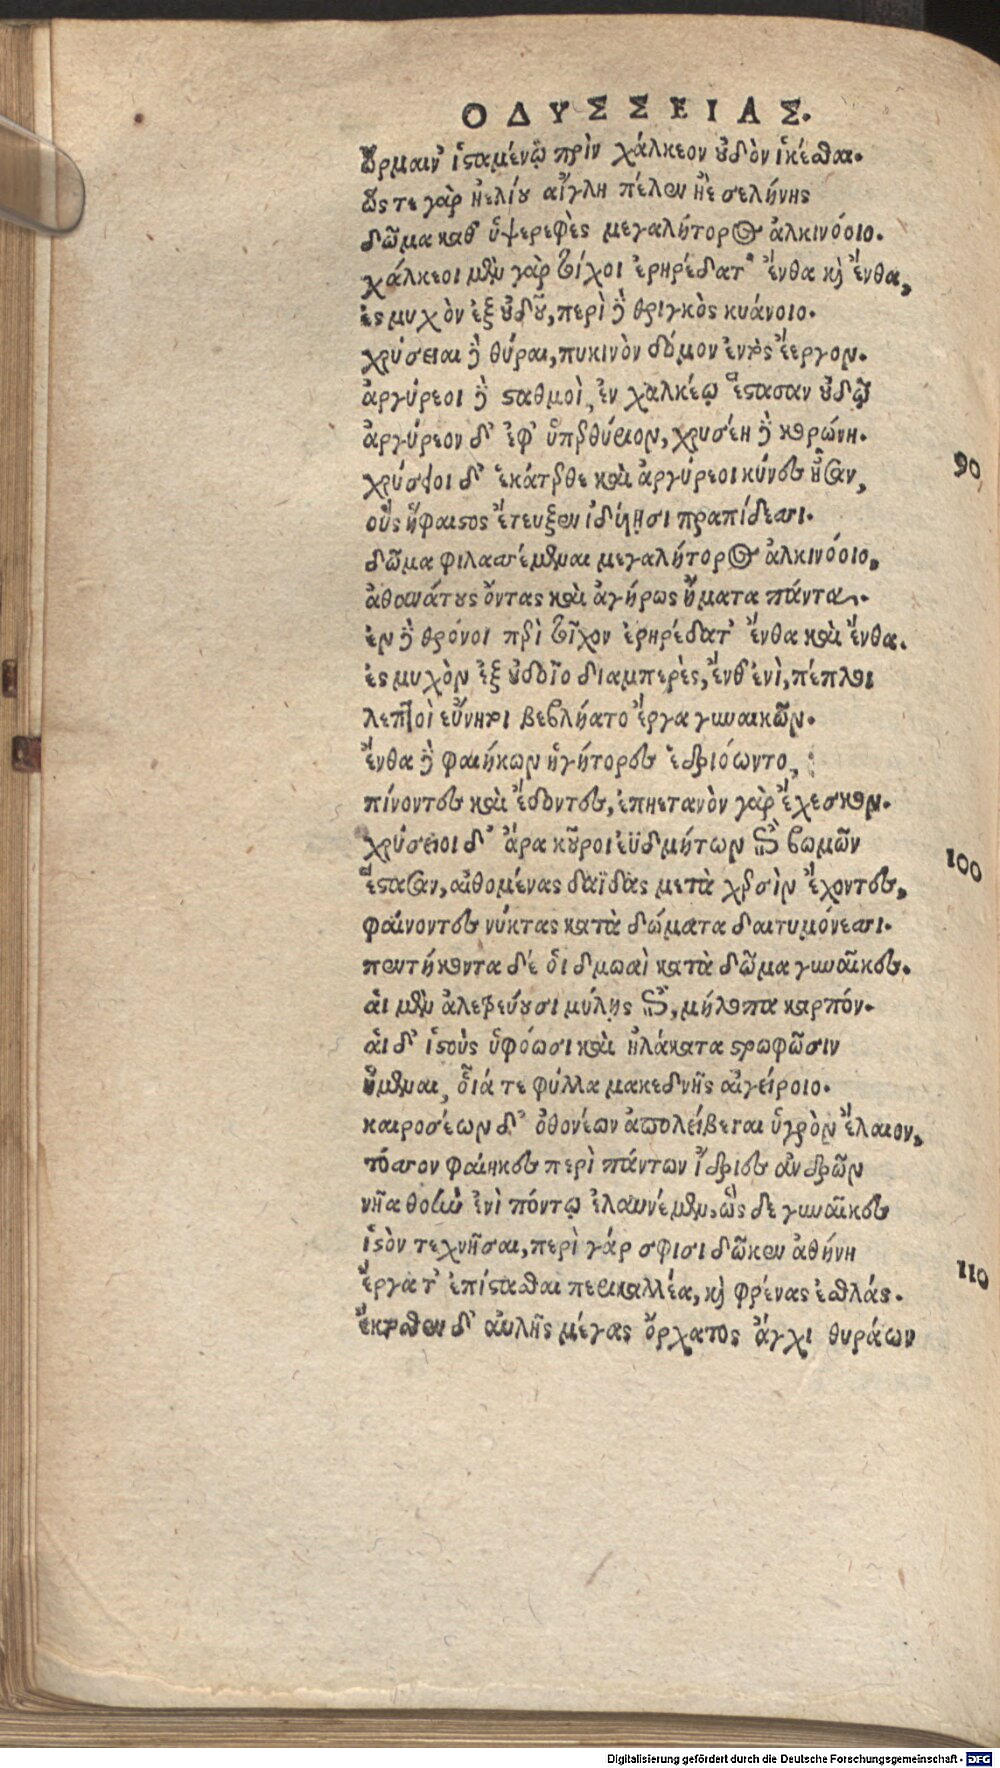 ΟΔΥΣΣΕΙΑΣ.
ὥρμαιν' ἱσταμένῳ πρὶν χάλκεον οὐδὸν ἱκέσθαι.
ὥς τε γὰρ ἠελίου αἴγλη πέλεν ἠὲ σελήνης
δῶμα καθ' ὑψερεφὲς μεγαλήτορος ἀλκινόοιο.
χάλκεοι μὲν γὰρ τοίχοι ἐρηρέδατ' ἔνθα καὶ ἔνθα,
ἐς μυχὸν ἐξ οὐδοῦ, περὶ δὲ θριγκὸς κυάνοιο.
χρύσειαι δὲ θύραι, πυκινὸν δόμον ἐντὸς ἔεργον.
ἀργύρεοι δὲ σταθμοὶ, ἐν χαλκέῳ ἕστασαν οὐδῷ
ἀργύρεον δ' ἐφ' ὑπερθύριον, χρυσέη δὲ κορώνη.
90
χρύσειοι δ' ἑκάτερθε καὶ ἀργύρεοι κύνες ἦσαν,
οὓς ἥφαιστος ἔτευξεν ἰδυίῃσι πραπίδεσσι.
δῶμα φυλασσέμεναι μεγαλήτορος ἀλκινόοιο,
ἀθανάτους ὄντας καὶ ἀγήρως ἤματα πάντα.
ἐν δὲ θρόνοι περὶ τοῖχον ἐρηρέδατ' ἔνθα καὶ ἔνθα.
ἐς μυχὸν ἐξ οὐδοῖο διαμπερὲς, ἔνθ' ἐνὶ, πέπλοι
λεπτοὶ εὔνητοι βεβλήατο ἔργα γυναικῶν.
ἔνθα δὲ φαιήκων ἡγήτορες ἑδριόωντο,
πίνοντες καὶ ἔδοντες, ἐπηετανὸν γὰρ ἔχεσκον.
100
χρύσειοι δ' ἄρα κοῦροι ἐϋδμήτων ἐπὶ βωμῶν
ἕστασαν, αἰθομένας δαΐδας μετὰ χερσὶν ἔχοντες,
φαίνοντες νύκτας κατὰ δώματα δαιτυμόνεσσι.
πεντήκοντα δέ οἱ δμωαὶ κατὰ δῶμα γυναῖκες.
αἱ μὲν ἀλετρεύουσι μύλῃς ἔπι, μήλοπα καρπόν.
αἱ δ' ἱστοὺς ὑφόωσι καὶ ἠλάκατα στρωφῶσιν
ἥμεναι, οἷά τε φύλλα μακεδνῆς αἰγείροιο.
καιροσέων δ' ὀθονέων ἀπολείβεται ὑγρὸν ἔλαιον,
τόσσον φαίηκες περὶ πάντων ἴδριες ἀνδρῶν
νῆα θοὴν ἐνὶ πόντῳ ἐλαυνέμεν, ὣς δὲ γυναῖκες
110
ἱστὸν τεχνῆσαι, περὶ γάρ σφισι δῶκεν ἀθήνη
ἔργα τ' ἐπίστασθαι περικαλλέα, καὶ φρένας ἐσθλάς.
ἔκτοσθεν δ' αὐλῆς μέγας ὄρχατος ἄγχι θυράων
Digitalisierung gefördert durch die Deutsche Forschungsgemeinschaft - DFG